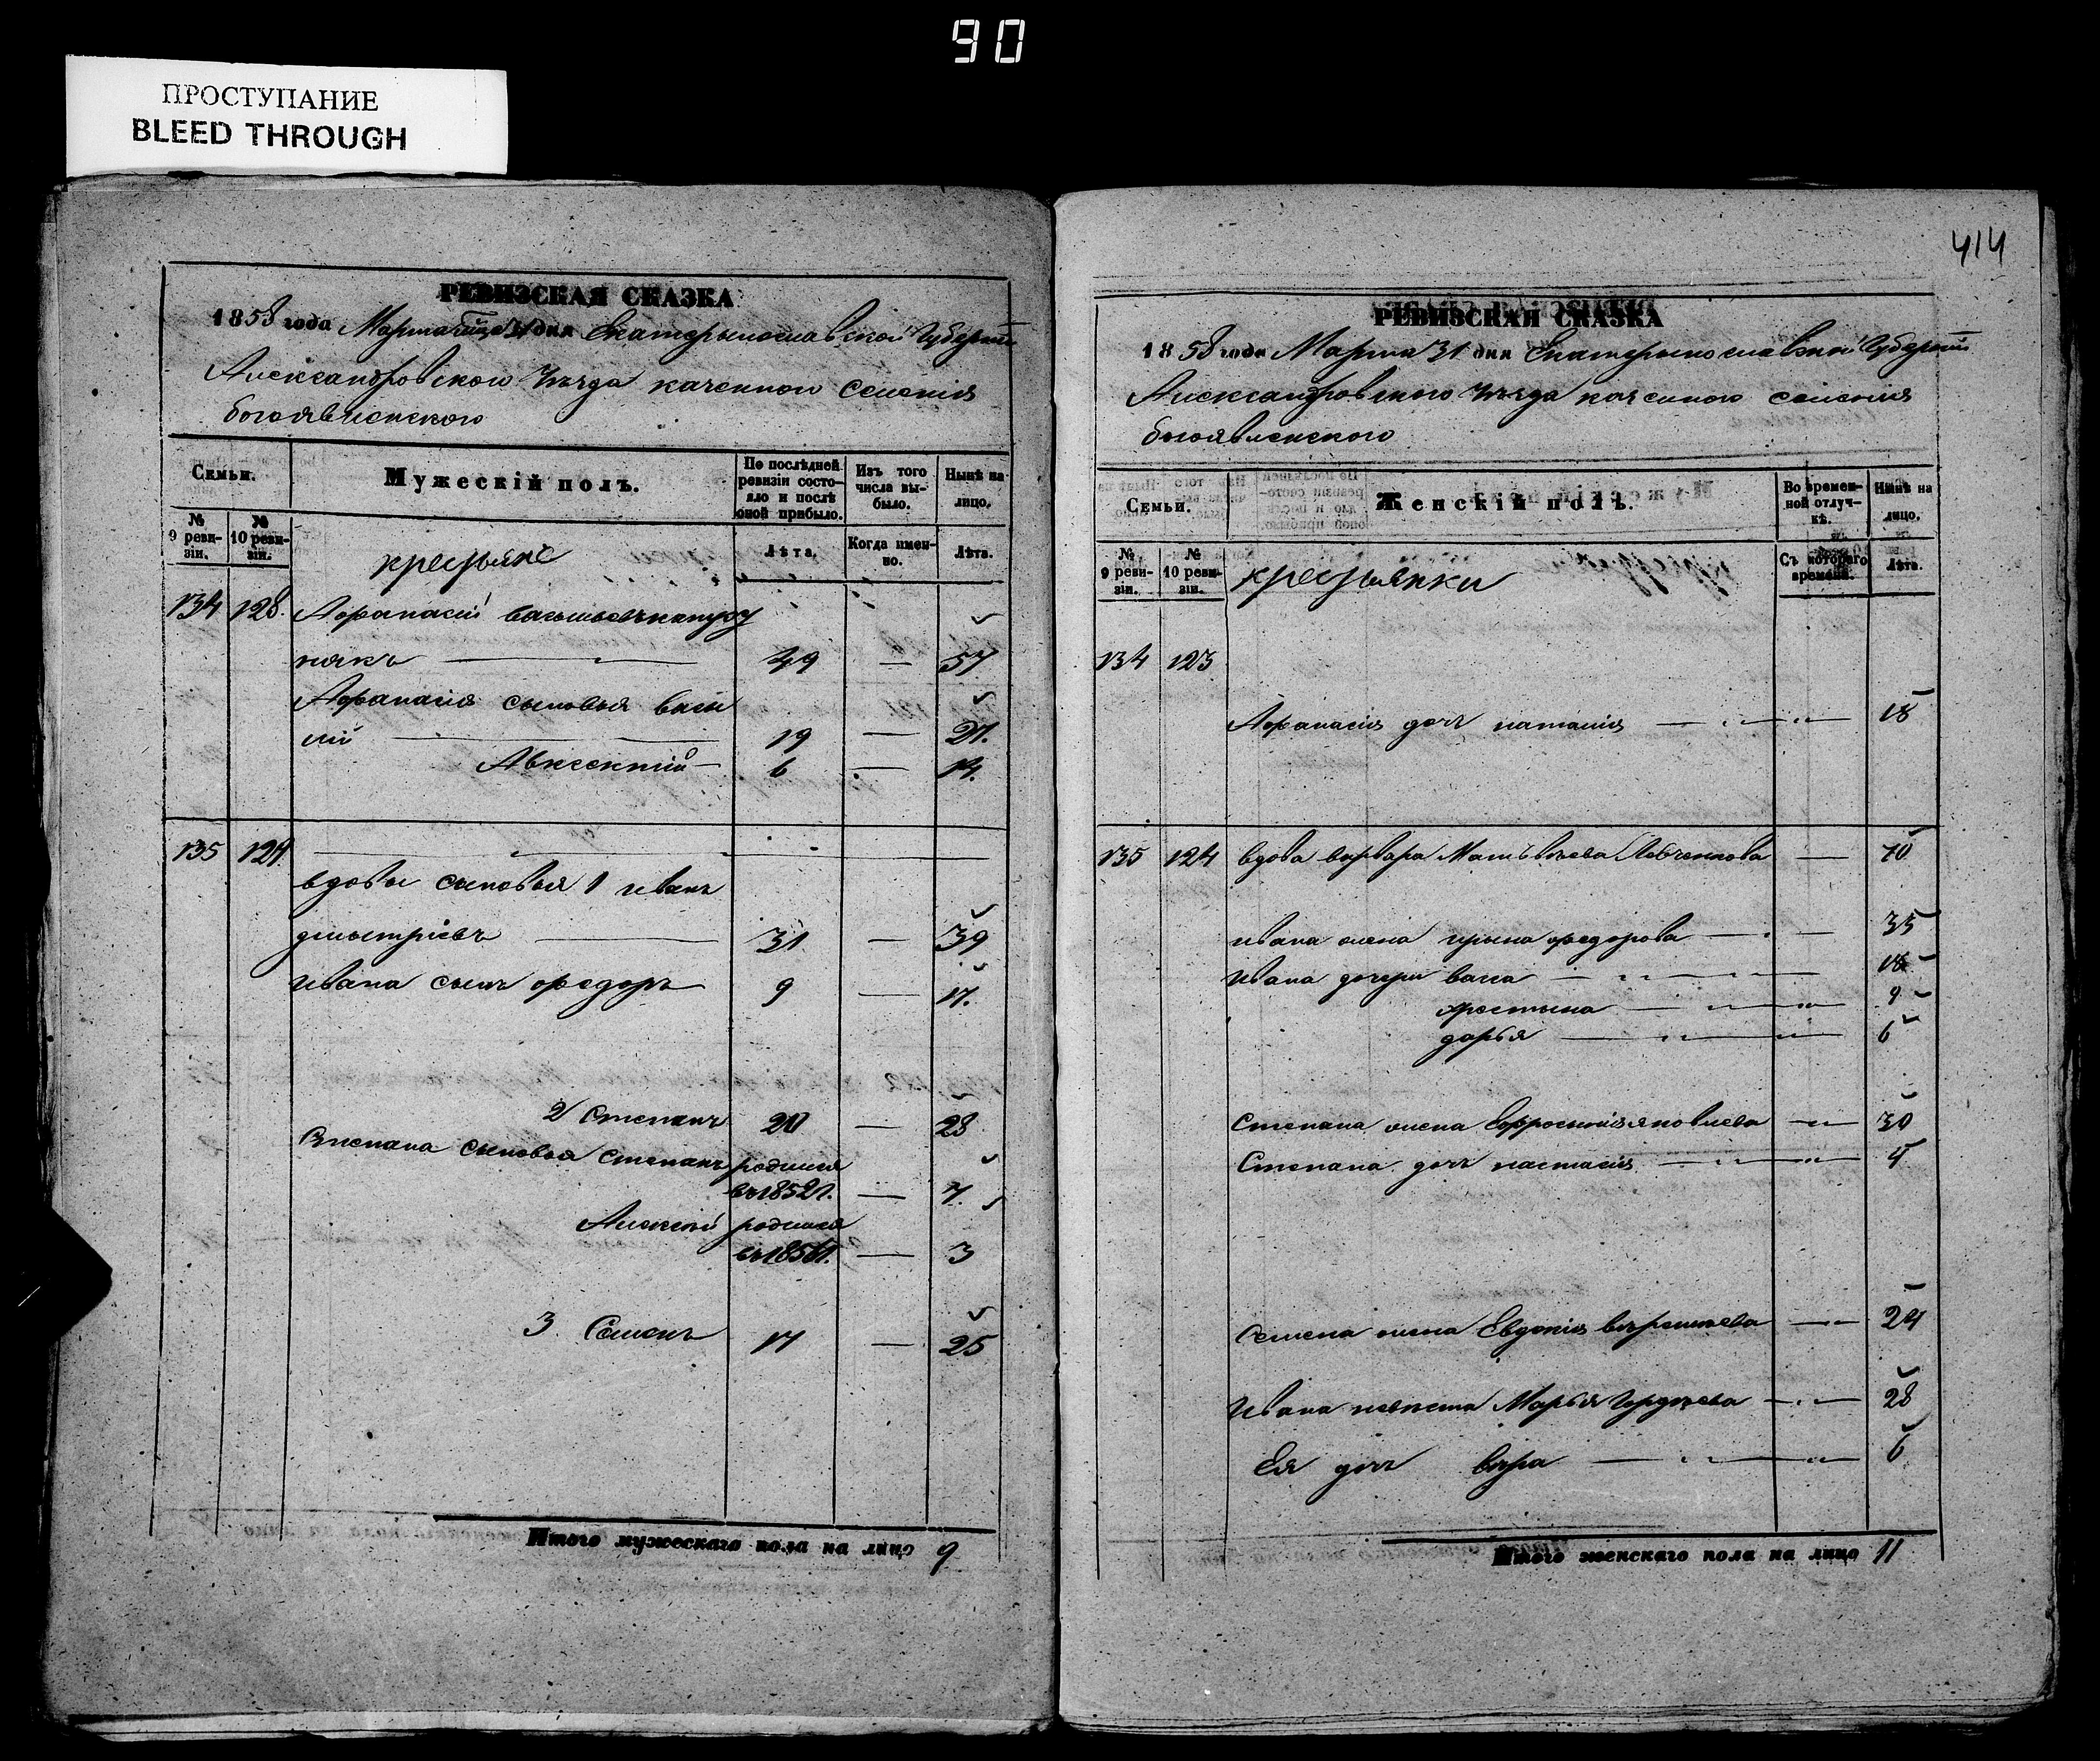 90
ПРОСТУПАНИЕ
BLEED THROUGH
РЕВИЗСКАЯ СКАЗКА
1858 года Марта 31 дня Екатеринославской Губерніи
Александровского Уѣзда казенного Селенія
богоявленского
Семьи.
Мужескій полъ.
По послѣдней ревизіи состояло и послѣ оной прибыло.
Изъ того числа выбыло.
Нынѣ на лицо.
№ 9 ревизіи.
№ 10 ревизіи.
крестьяне
Лѣта.
Когда именно.
Лѣта.
134 123. Афанасій
някъ 49 — 57
Афанасія сыновья васи
лій 19 — 27.
Авксентій 6 — 14.
135 124
вдовы сыновья 1 иванъ
дмытріевъ 31 — 39
ивана сынъ федоръ 9 — 17.
2 Степанъ 20 — 28
Степана сыновья Степанъ родился
въ 1852 г. — 7.
Алексѣй родился
въ 1856 г. — 3
3. Семенъ 17 — 25
Итого мужескаго пола на лицо 9
414
РЕВИЗСКАЯ СКАЗКА
1858 года Марта 31 дня Екатеринославской Губерніи
Александровского Уѣзда казенного селенія
богоявленского
Семьи.
Женскій полъ.
Во временной отлучкѣ.
Нынѣ на лицо.
№ 9 ревизіи.
№ 10 ревизіи.
крестьянки
Съ котораго времени.
Лѣта.
134 123
Афанасія дочь наталія 18
135 124 вдова варвара Матвѣева — 70
ивана жена ирына федорова 35
ивана дочери васса 18
христына 9
дарья 6
Степана жена Ефросинія яковлева 30
Степана дочь настасія 4
Семена жена Евдокія 24
ивана невѣста Марья 28
Ея дочь вѣра 6
Итого женскаго пола на лицо 11